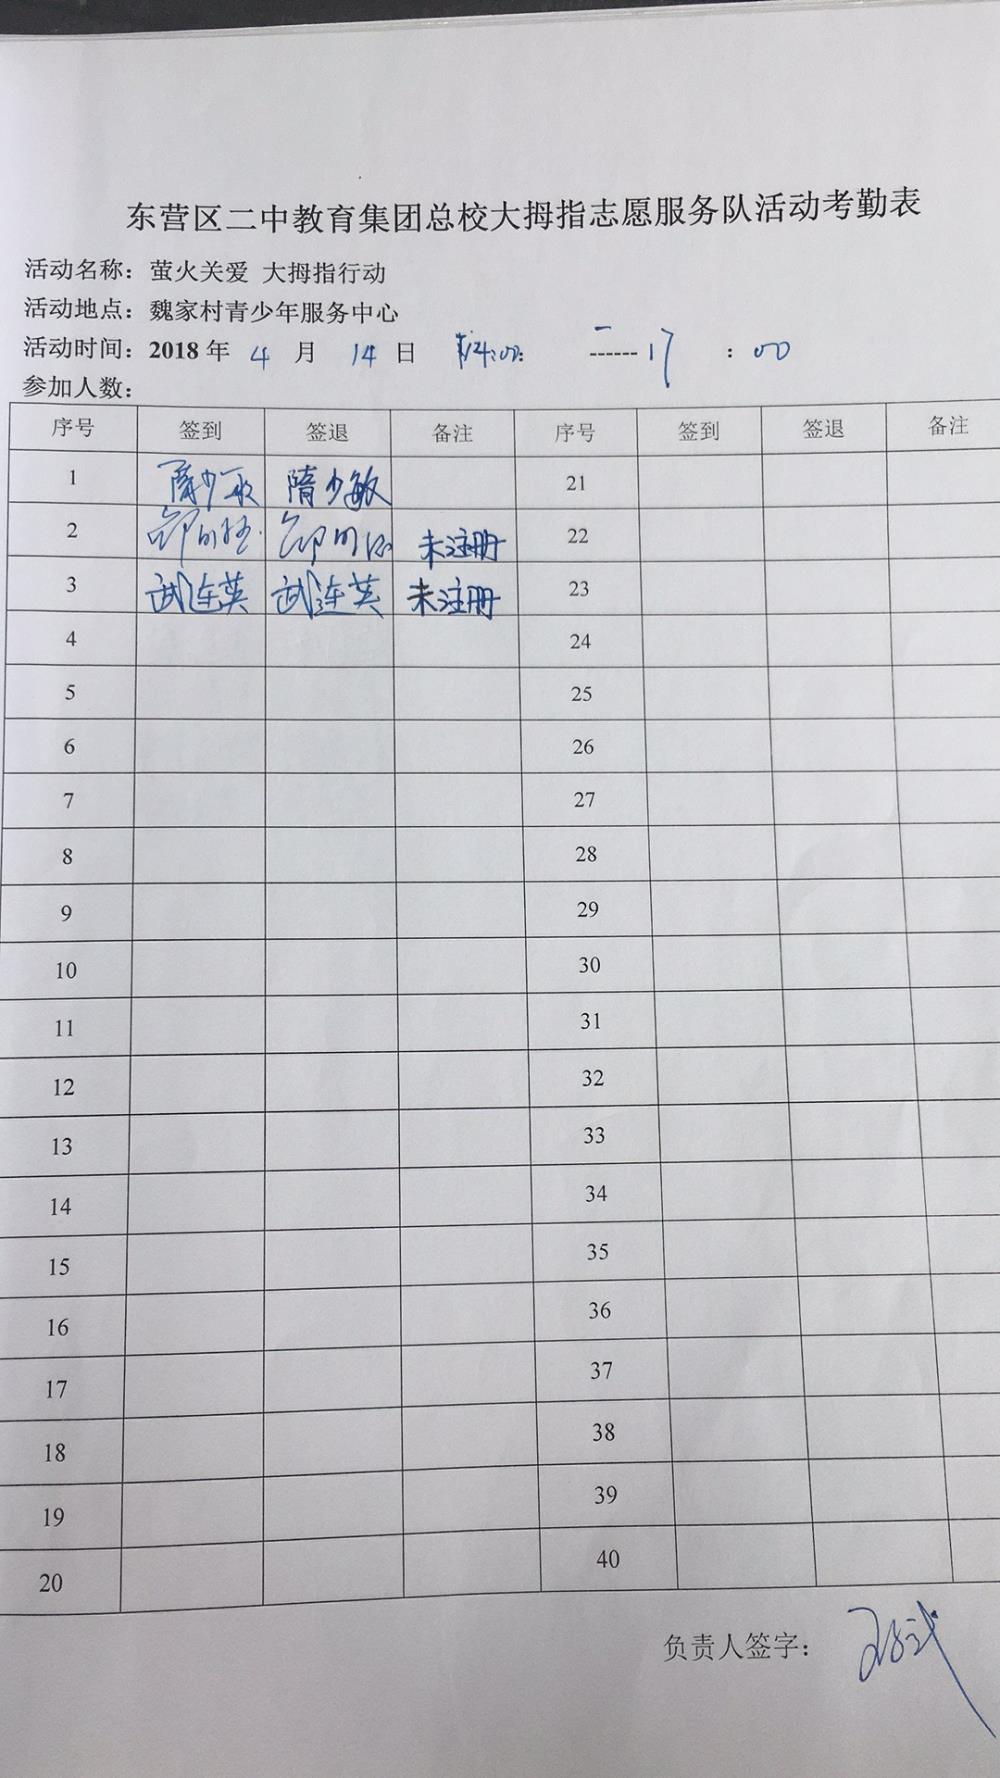 东营区二中教育集团总校大拇指志愿服务队活动考勤表
活动名称：萤火关爱 大拇指行动
活动地点：魏家村青少年服务中心
活动时间：2018 年 4 月 14 日 14:00: ------17 : 00
参加人数：
序号 签到 签退 备注 序号 签到 签退 备注
1 隋少敏 隋少敏 21
2 未注册 22
3 武连英 武连英 未注册 23
4 24
5 25
6 26
7 27
8 28
9 29
10 30
11 31
12 32
13 33
14 34
15 35
16 36
17 37
18 38
19 39
20 40
负责人签字：